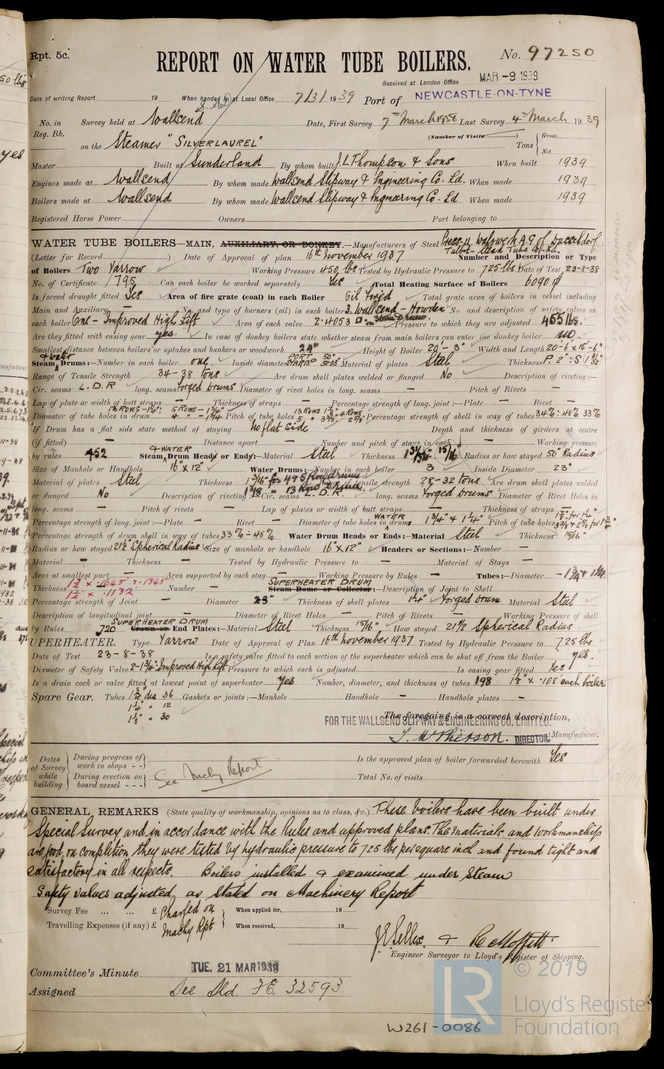 Rpt. 5c.
REPORT ON WATER TUBE BOILERS.
No. 97250
Received at London Office MAR -9 1939
Date of writing Report 19 When handed in at Local Office 7/3/1939 Port of NEWCASTLE-ON-TYNE
No. in Reg. Bk. Survey held at Wallsend Date, First Survey 7th March 1938 Last Survey 4th March 1939
(Number of Visits
on the Steamer "SILVERLAUREL" Tons Gross Net
Master Built at Sunderland By whom built J L Thompson & Sons When built 1939
Engines made at Wallsend By whom made Wallsend Slipway & Engineering Co. Ld. When made 1939
Boilers made at Wallsend By whom made Wallsend Slipway & Engineering Co. Ld. When made 1939
Registered Horse Power Owners Port belonging to
WATER TUBE BOILERS—MAIN, AUXILIARY, OR DONKEY.—Manufacturers of Steel
(Letter for Record ) Date of Approval of plan 16th November 1937 Number and Description or Type
of Boilers Two Yarrow Working Pressure 450 lbs Tested by Hydraulic Pressure to 725 lbs Date of Test 23-8-38
No. of Certificate 1795 Can each boiler be worked separately Yes Total Heating Surface of Boilers 6090
Is forced draught fitted Yes Area of fire grate (coal) in each Boiler Oil Fired Total grate area of boilers in vessel including
Main and Auxiliary No. and type of burners (oil) in each boiler 3. Wallsend - Howden No. and description of safety valves on
each boiler One - Improved High Lift Area of each valve 2.4053 Pressure to which they are adjusted 455 lbs.
Are they fitted with easing gear Yes In case of donkey boilers state whether steam from main boilers can enter the donkey boiler no
Smallest distance between boilers or uptakes and bunkers or woodwork 24" Height of Boiler 24'-3" Width and Length 20'-6 x 15'-6"
Steam Drums:—Number in each boiler one Inside diameter 50" Material of plates Steel Thickness
Range of Tensile Strength 34-38 tons Are drum shell plates welded or flanged No Description of riveting—
Cir. seams L.D.R long. seams forged drums Diameter of rivet holes in long. seams — Pitch of Rivets —
Lap of plate or width of butt straps — Thickness of straps — Percentage strength of long. joint:—Plate — Rivet —
Diameter of tube holes in drum Pitch of tube holes Percentage strength of shell in way of tubes
If Drum has a flat side state method of staying no flat side Depth and thickness of girders at centre
(if fitted) — Distance apart — Number and pitch of stays in each — Working pressure
by rules 452 Steam & WATER Drum Heads or Ends:—Material Steel Thickness Radius or how stayed 50" Radius
Size of Manhole or Handhole 16" x 12" Water Drums:—Number in each boiler 3 Inside Diameter 23"
Material of plates Steel Thickness Range of tensile strength 28-32 tons Are drum shell plates welded
or flanged No Description of riveting:—Cir. seams L.D.R. long. seams forged drums Diameter of Rivet Holes in
long. seams — Pitch of rivets — Lap of plates or width of butt straps — Thickness of straps
Percentage strength of long. joint:—Plate — Rivet — Diameter of tube holes in drums 1 3/4" & 1 1/4" Pitch of tube holes
Percentage strength of drum shell in way of tubes 33%-45% WATER Water Drum Heads or Ends:—Material Steel Thickness 15/16"
Radius or how stayed 21½ Spherical Radius Size of manhole or handhole 16" x 12" Headers or Sections:—Number —
Material — Thickness — Tested by Hydraulic Pressure to — Material of Stays —
Area at smallest part — Area supported by each stay — Working Pressure by Rules — Tubes:—Diameter
Thickness Number — SUPERHEATER DRUM Steam Dome or Collector:—Description of Joint to Shell
Percentage strength of Joint — Diameter 23" Thickness of shell plates 1¼" forged drum Material Steel
Description of longitudinal joint — Diameter of Rivet Holes — Pitch of Rivets — Working Pressure of shell
by Rules 720 SUPERHEATER DRUM Crown or End Plates:—Material Steel Thickness 15/16" How stayed 21½ Spherical Radius
UPERHEATER. Type Yarrow Date of Approval of Plan 16th november 1937 Tested by Hydraulic Pressure to 725 lbs
Date of Test 23-8-38 Is a safety valve fitted to each section of the superheater which can be shut off from the Boiler yes.
Diameter of Safety Valve Improved High Lift Pressure to which each is adjusted Is easing gear fitted Yes
Is a drain cock or valve fitted at lowest point of superheater yes Number, diameter, and thickness of tubes 198 1¼" x .108 each boiler
Spare Gear. Tubes 1¾" dia 36 Gaskets or joints:—Manhole Handhole — Handhole plates —
1¼" " 12
1¼" " 30
The foregoing is a correct description,
FOR THE WALLSEND SLIPWAY & ENGINEERING CO. LIMITED.
DIRECTOR Manufacturer.
Dates of Survey while building
During progress of work in shops - -
During erection on board vessel - - -
See Machy Report
Is the approved plan of boiler forwarded herewith Yes
Total No. of visits
GENERAL REMARKS (State quality of workmanship, opinions as to class, &c.) These boilers have been built under
Special Survey and in accordance with the Rules and approved plans. The materials and workmanship
are good, on completion they were tested by hydraulic pressure to 725 lbs per square inch and found tight and
satisfactory in all respects. Boilers installed & examined under Steam
Safety valves adjusted, as stated on Machinery Report
Survey Fee ... ... £ Charged on When applied for, 19
Travelling Expenses (if any) £ Machy Rpt When received, 19
Engineer Surveyor to Lloyd's Register of Shipping.
Committee's Minute TUE. 21 MAR 1939
Assigned See Sld. F.E. 32593
W261-0086
LR
© 2019
Lloyd's Register
Foundation